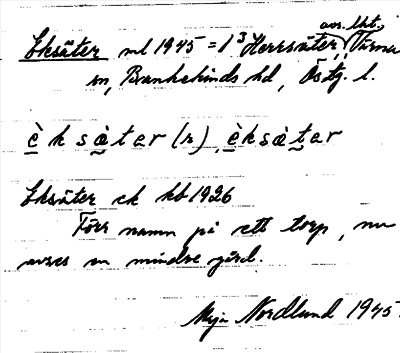 avs. lht.
Eksäter ml 1945 = 1³ Herrsäter, Värna
sn, Bankekinds hd, Östg. l.
è k s ä̀ t a r (r), è k s ä̀ t a r
Eksäter ek hb 1926
Förr namn på ett torp, nu
avses en mindre gård.
Maja Nordlund 1945.